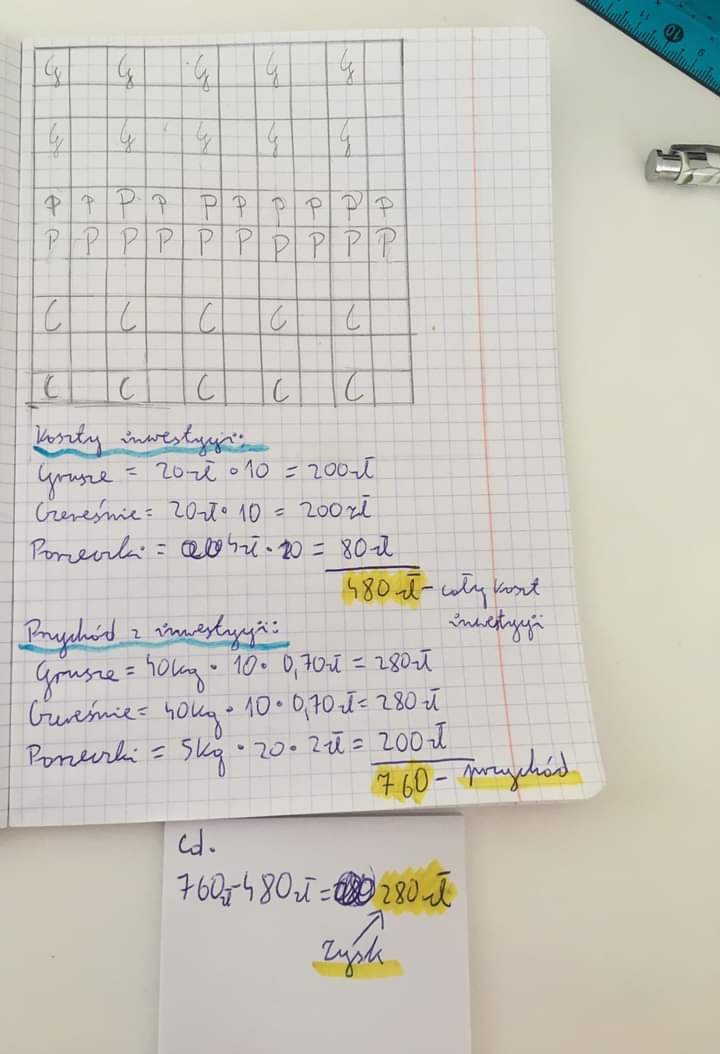 G G G G G
G G G G G
P P P P P P P P P P
P P P P P P P P P P
C C C C C
C C C C C
Koszty inwestycji:
Grusze = 20zł • 10 = 200zł
Czereśnie = 20zł • 10 = 200zł
Porzeczki = 4zł • 20 = 80zł
480zł - cały koszt
inwestycji
Przychód z inwestycji:
Grusze = 40kg • 10 • 0,70zł = 280zł
Czereśnie = 40kg • 10 • 0,70zł = 280zł
Porzeczki = 5kg • 20 • 2zł = 200zł
760 - przychód
Cd.
760zł - 480zł = 280zł
Zysk